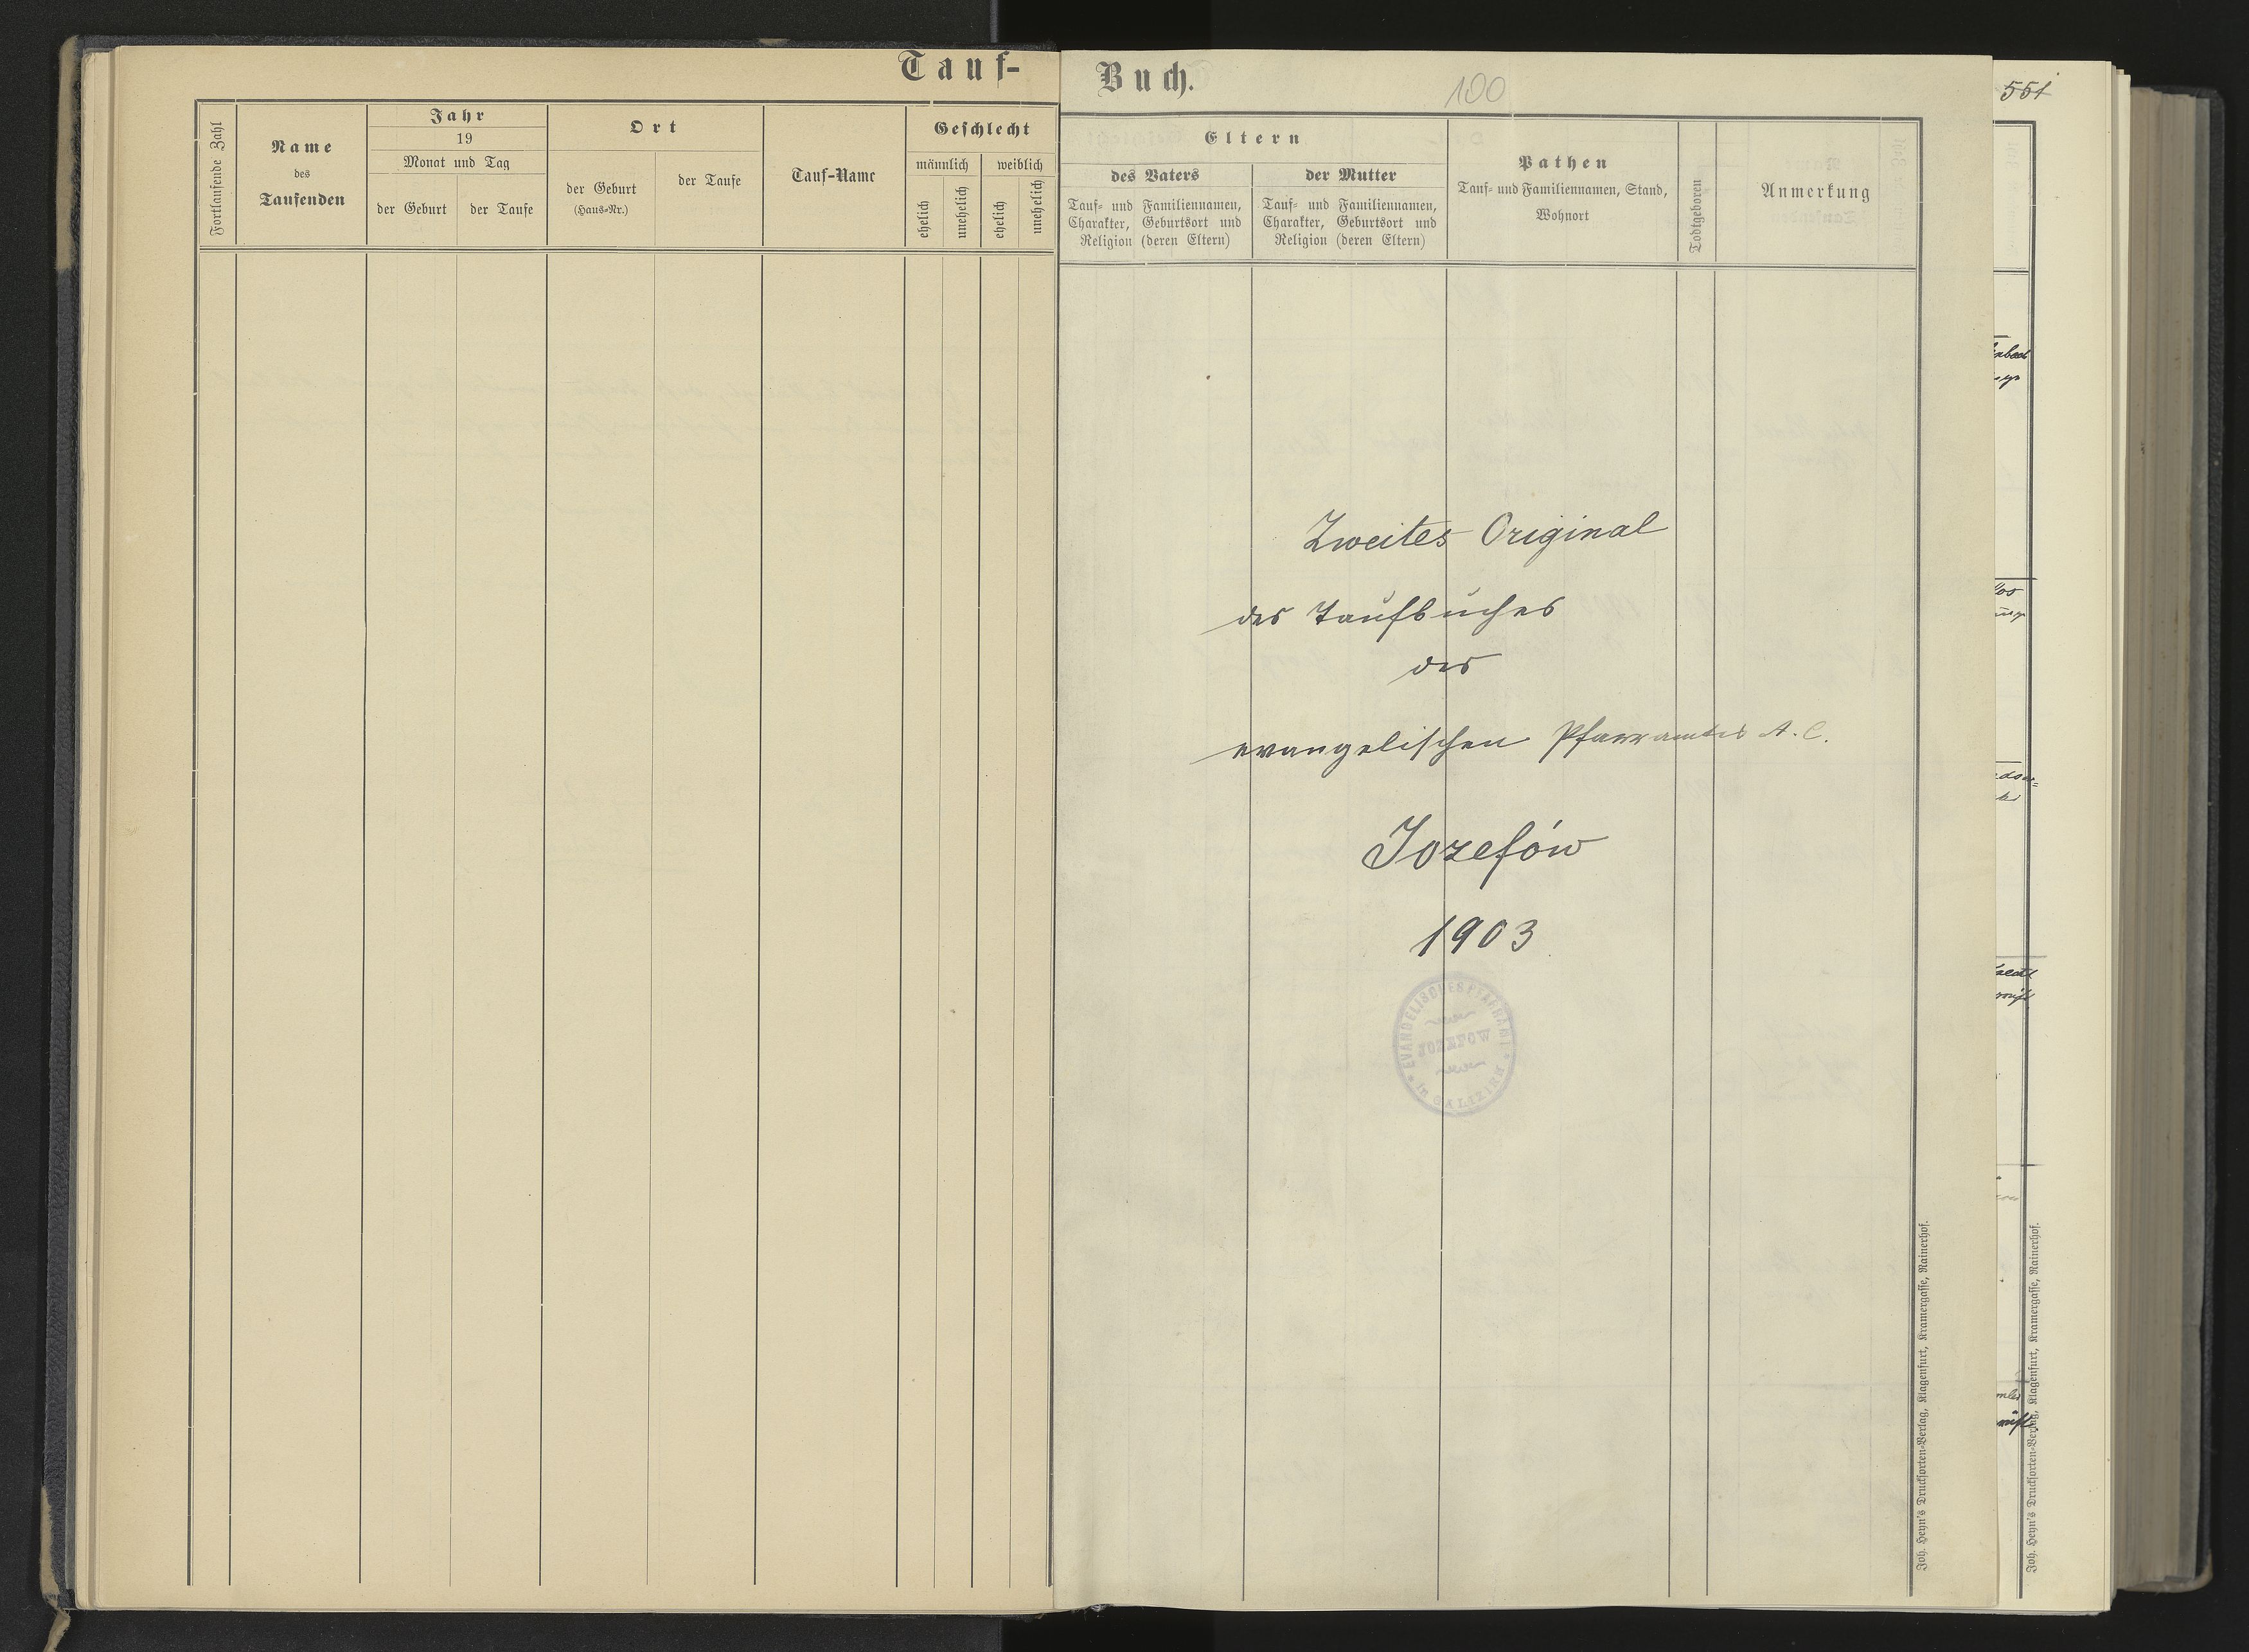 Tauf-
Fortlaufende Zahl
Name
des
Taufenden
Jahr
19
Monat und Tag
der Geburt
der Taufe
Ort
der Geburt
(Haus-Nr.)
der Taufe
Tauf-Name
Geschlecht
männlich
weiblich
ehelich
unehelich
ehelich
unehelich
Buch.
100
Eltern
des Vaters
Tauf- und Familiennamen,
Charakter, Geburtsort und
Religion (deren Eltern)
der Mutter
Tauf- und Familiennamen,
Charakter, Geburtsort und
Religion (deren Eltern)
Pathen
Tauf- und Familiennamen, Stand,
Wohnort
Todtgeboren
Anmerkung
Zweites Original
des Taufbuches
des
evangelischen Pfarramtes A. C.
Jozefów
1903
EVANGELISCHES PFARRAMT
JOZEFOW
in GALIZIEN
Joh. Heyn's Drucksorten-Verlag, Klagenfurt, Kramergasse, Rainerhof.
551
Joh. Heyn's Drucksorten-Verlag, Klagenfurt, Kramergasse, Rainerhof.